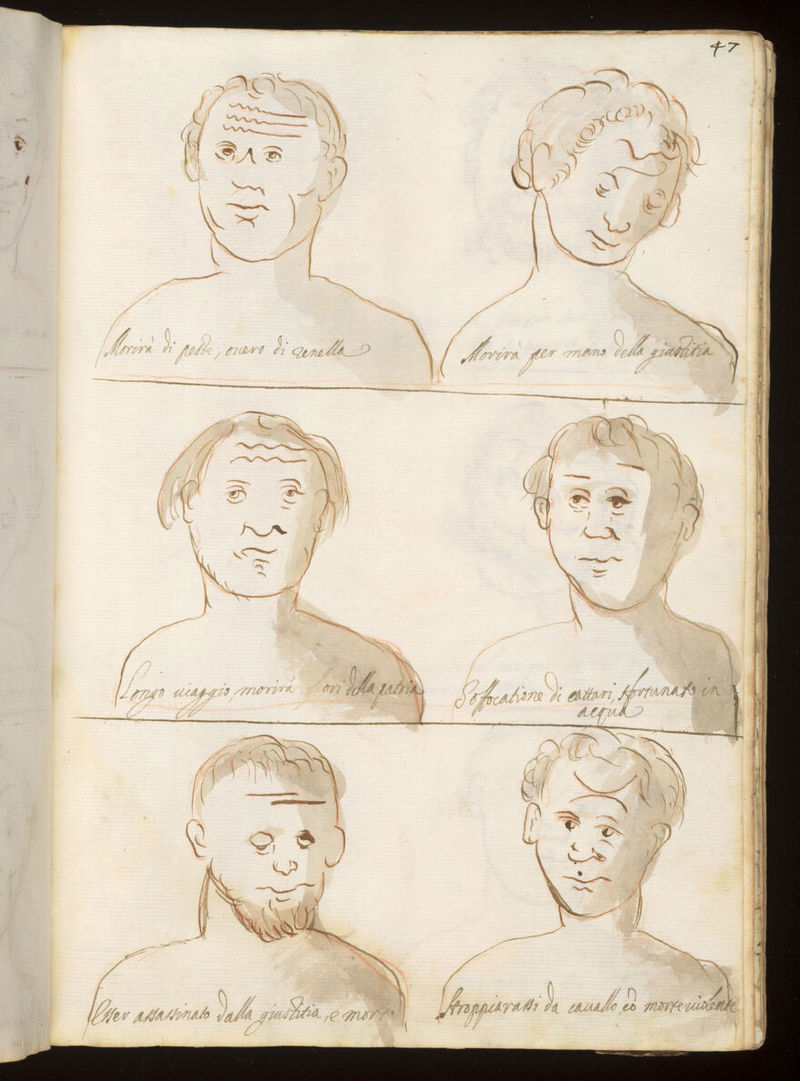 47
Morirà di peste, overo di renella
Morirà per mano della giustitia
Longo viaggio, morirà fuori della patria
Soffocatione di cattari, sfortunato in
acqua
Esser assassinato dalla giustitia, è morto
Stroppiarassi da cavallo, eò morte violente